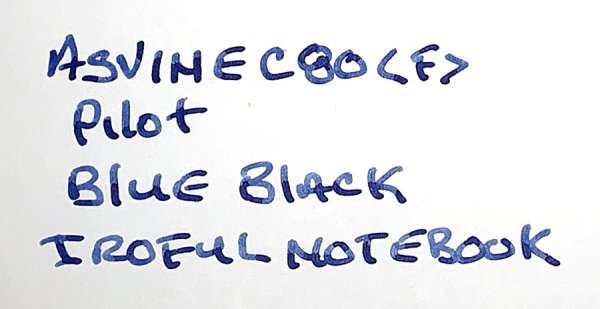 ASVINE C80 <F>
Pilot
BLUE BLACK
IROFUL NOTEBOOK